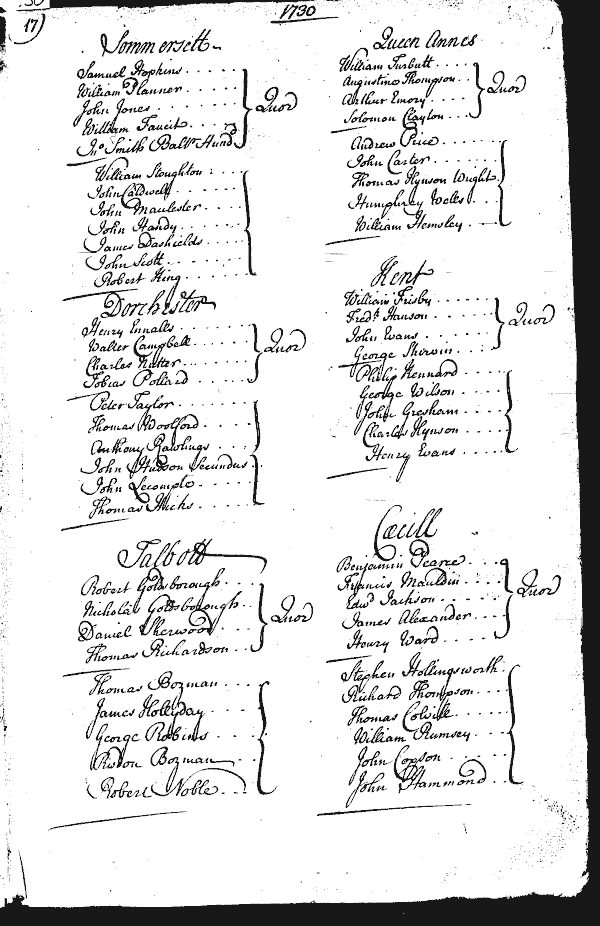 17)
1730
Sommersett
Samuel Hopkins
William Planner
John Jones
William Faucit
Jno Smith Baltr Hund
Quor
William Stoughton
John Caldwell
John Maulester
John Handy
James Dashields
John Scott
Robert King
Dorchester
Henry Ennalls
Walter Campbell
Charles Nutter
Tobias Pollard
Quor
Peter Taylor
Thomas Woolford
Anthony Rawlings
John Hudson Secundus
John Lecompte
Thomas Hicks
Talbott
Robert Goldsborough
Nicholas Goldsborough
Daniel Sherwood
Thomas Richardson
Quor
Thomas Bozman
James Hollyday
George Robins
Risdon Bozman
Robert Noble
Queen Annes
William Turbutt
Augustine Thompson
Arthur Emory
Solomon Clayton
Quor
Andrew Price
John Carter
Thomas Hynson Wright
Humphrey Wells
William Hemsley
Kent
William Frisby
Fredk Hanson
John Evans
George Sherwin
Quor
Philip Kennard
George Wilson
John Gresham
Charles Hynson
Henry Evans
Cæcill
Benjamin Pearce
Francis Mauldin
Edwd Jackson
James Alexander
Henry Ward
Quor
Stephen Hollingsworth
Richard Thompson
Thomas Colvill
William Rumsey
John Copson
John Hammond